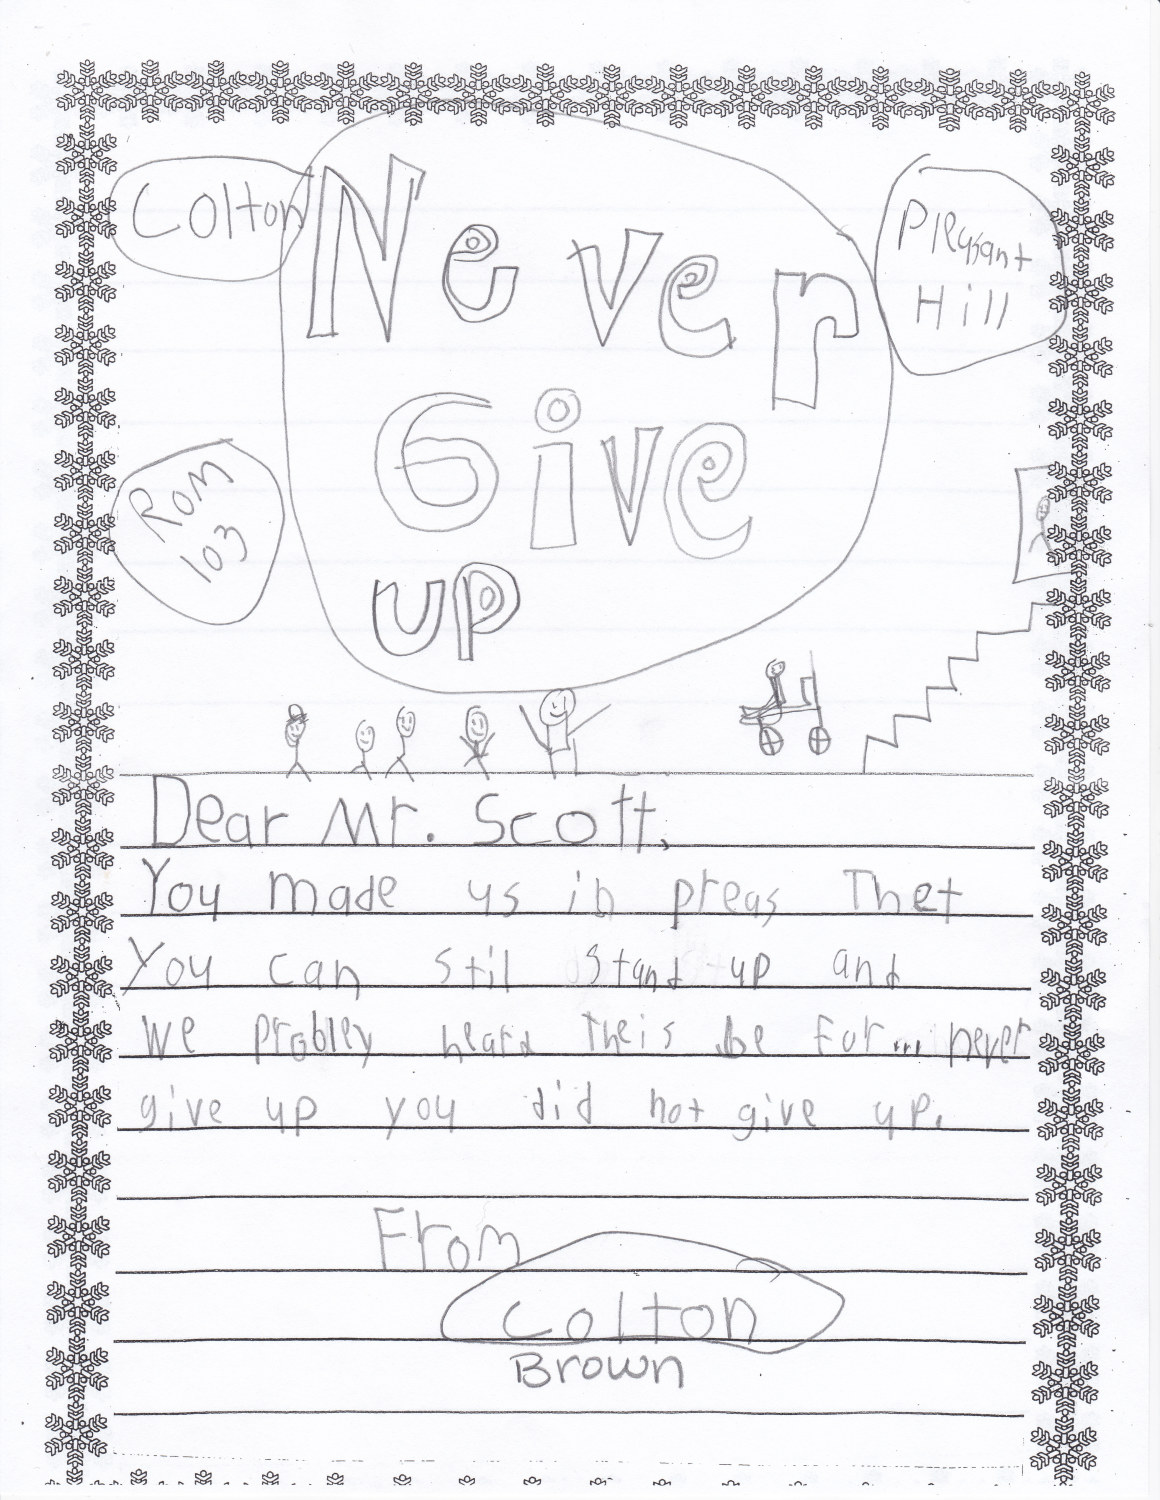 Colton
Never
Pleasant
Hill
Give
Rom
103
up
Dear Mr. Scott,
You made us in preas Thet
You can stil stand up and
We probley heard theis be for... never
give up you did not give up.
From
Colton
Brown